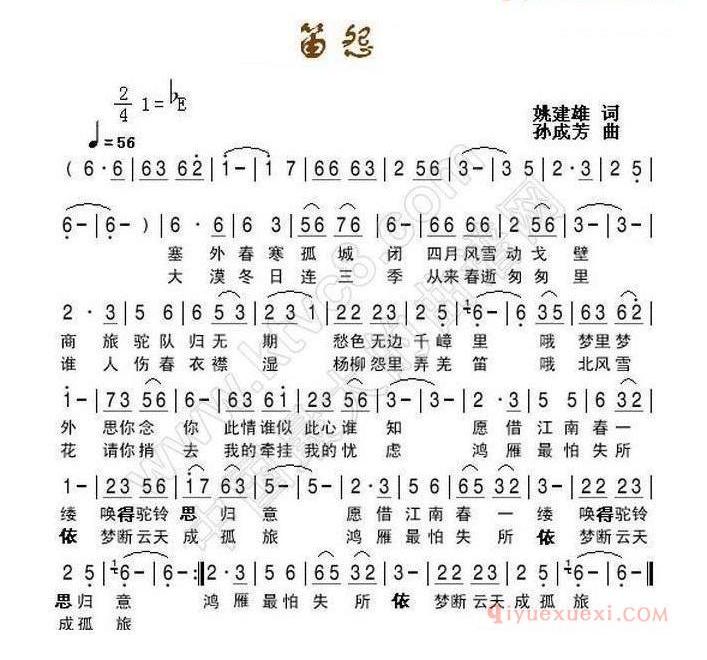 笛怨
2/4 1=♭E
姚建雄 词
♩=56
孙成芳 曲
( 6·6 | 63 62 | 1- | 1 7 | 66 63 | 2 56 | 3- | 3 5 | 2·3 | 2 5 |
6- | 6- ) | 6· 6 | 6 3 | 56 76 | 6- | 66 66 | 2 56 | 3- | 3- |
塞外春寒孤城闭 四月风雪动戈壁
大漠冬日连三季 从来春逝匆匆里
2· 3 | 5 6 | 6 53 | 2- | 23 1 | 2 35 | 6- | 6- | 2 65 | 63 62 |
商旅驼队归无期 愁色无边千嶂里 哦梦里梦
谁人伤春衣襟湿 杨柳怨里弄羌笛 哦北风雪
1- | 73 56 | 6- | 63 61 | 23 56 | 3- | 3- | 2· 3 | 5 6 | 65 32 |
外 思你念你 此情谁似 此心谁知 愿借江南春一
花 请你捎去 我的牵挂 我的忧虑 鸿雁最怕失所
1- | 23 56 | 17 63 | 5- | 5- | 2· 3 | 5 6 | 65 32 | 3- | 23 56 |
缕 唤得驼铃思归意 愿借江南春一缕 唤得驼铃
依 梦断云天成孤旅 鸿雁最怕失所依 梦断云天
2 5 | 6- | 6- :| 2· 3 | 5 6 | 65 32 | 3- | 22 56 | 2 5 | 6- | 6- ‖
思归意 鸿雁最怕失所依 梦断云天成孤旅
成孤旅
www.ktvc8.com
qiyuexuexi.com